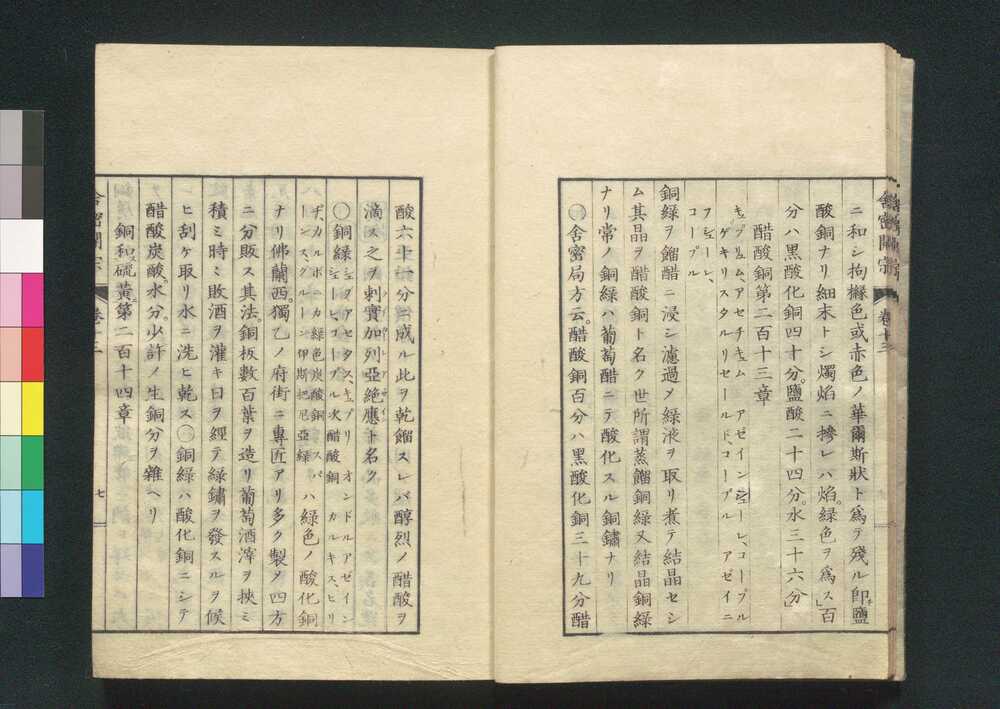 ニ和シ拘櫞色或赤色ノ華爾斯狀ト爲テ殘ル卽鹽
酸銅ナリ細末トシ燭焰ニ摻レハ焰。綠色ヲ爲ス」百
分ハ黑酸化銅四十分。鹽酸二十四分。水三十六分」
醋酸銅第二百十三章
キュプリュム、アセチキュム アゼインシューレ、コープル
ゲキリスタルリセールドコープル アゼイニ
フシューレ、
コープル
銅綠ヲ餾醋ニ浸シ濾過メ綠液ヲ取リ煮テ結晶セシ
ム其晶ヲ醋酸銅ト名ク世所謂蒸餾銅綠又結晶銅綠
ナリ常ノ銅綠ハ葡萄醋ニテ酸化スル銅鏽ナリ
〇舍密局方云。醋酸銅百分ハ黑酸化銅三十九分醋
舍密開宗 卷十三
酸六十一分ニ成ル此ヲ乾餾スレバ醇烈ノ醋酸ヲ
滴ス之ヲ剌實加列亞絕應ト名ク
〇銅綠
シュプアセタス、キュプリ オンドルアゼイン
シューヒ、コープル 次醋酸銅 カルキス、ヒリ
ヂカルボニカ 綠色炭酸銅 スパ
ーンス、グルーン 伊斯把尼亞綠
ハ綠色ノ酸化銅
ナリ佛蘭西。獨乙ノ府街ニ專匠アリ多ク製メ四方
ニ分販ス其法。銅板數百葉ヲ造リ葡萄酒滓ヲ挾ミ
積ミ時ミ敗酒ヲ灌キ日ヲ經テ綠鏽ヲ發スルヲ候
ヒ刮ケ取リ水ニ洗ヒ乾ス〇銅綠ハ酸化銅ニシテ
醋酸炭酸水分。少許ノ生銅分ヲ雜ヘリ
銅和硫黃第二百十四章
舍密開宗 卷十三 七